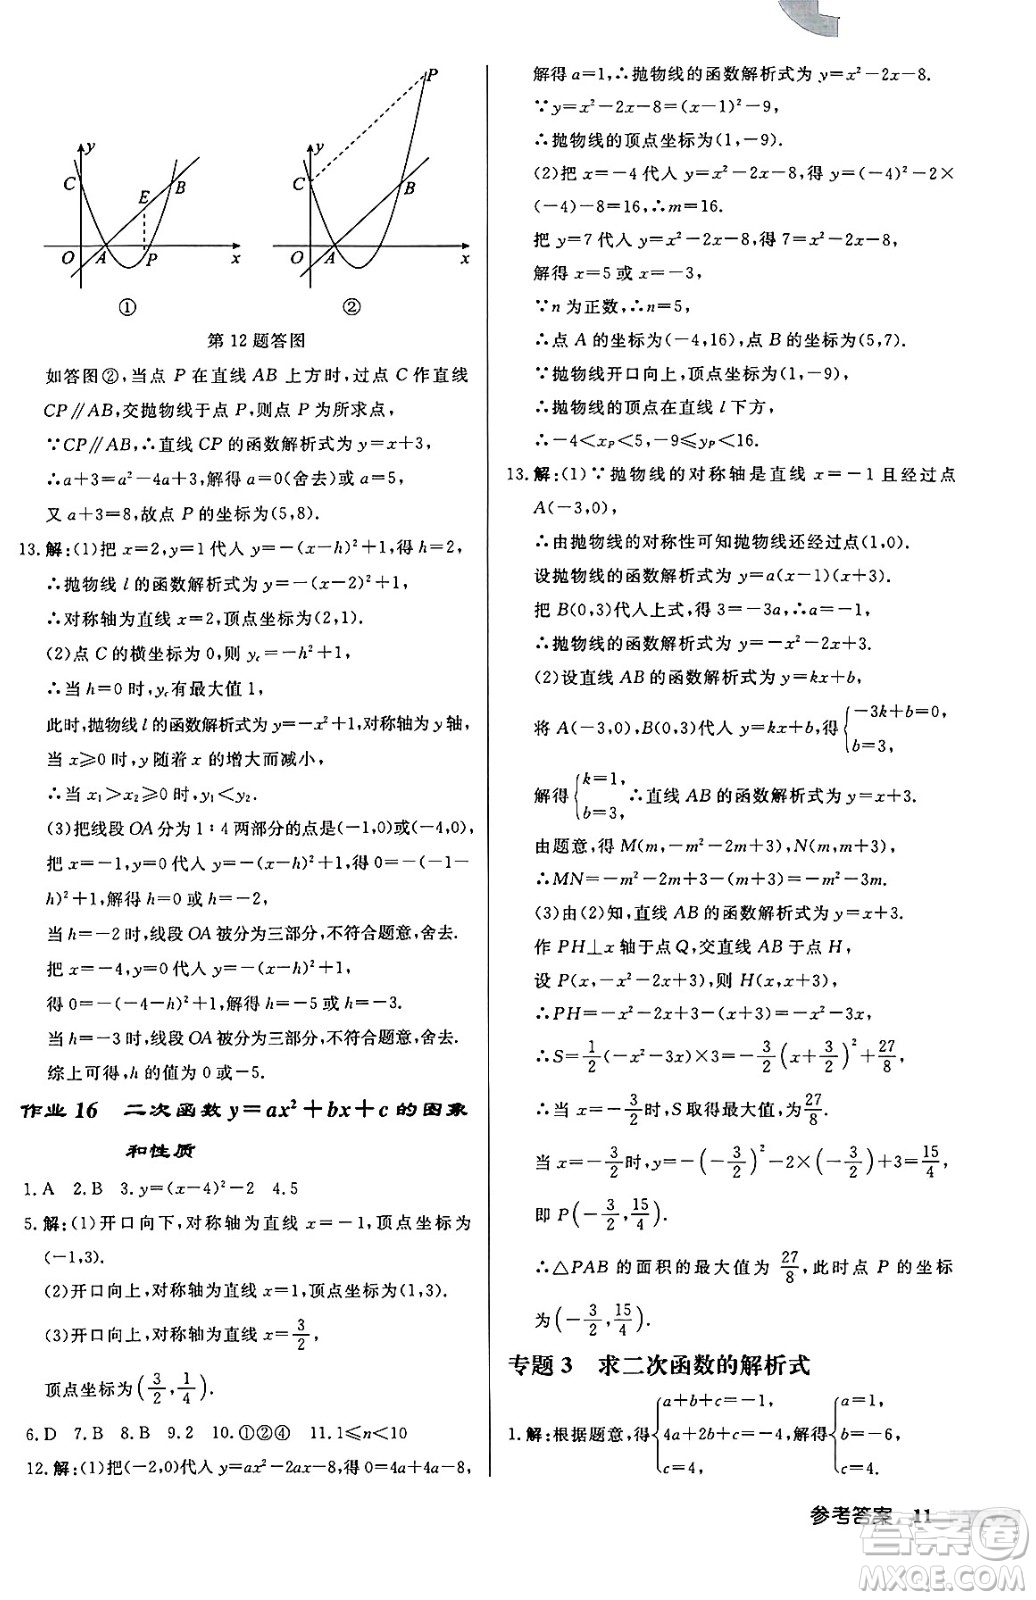 y
C
E
B
O
A
P
x
①
P
y
C
B
O
A
x
②
第12题答图
如答图②,当点 P 在直线 AB 上方时,过点 C 作直线
CP∥AB,交抛物线于点 P,则点 P 为所求点,
∵CP∥AB,∴直线 CP 的函数解析式为 y=x+3,
∴a+3=a²-4a+3,解得 a=0(舍去)或 a=5,
又 a+3=8,故点 P 的坐标为(5,8).
13.解:(1)把 x=2,y=1代人 y=-(x-h)²+1,得 h=2,
∴抛物线 l 的函数解析式为 y=-(x-2)²+1,
∴对称轴为直线 x=2,顶点坐标为(2,1).
(2)点 C 的横坐标为0,则 y_c=-h²+1,
∴当 h=0时,y_c有最大值1,
此时,抛物线 l 的函数解析式为 y=-x²+1,对称轴为 y 轴,
当 x≥0时,y 随着 x 的增大而减小,
∴当 x₁>x₂≥0时,y₁<y₂.
(3)把线段OA分为1∶4两部分的点是(-1,0)或(-4,0),
把 x=-1,y=0代人 y=-(x-h)²+1,得0=-(-1-
h)²+1,解得 h=0或 h=-2,
当 h=-2时,线段OA被分为三部分,不符合题意,舍去.
把 x=-4,y=0代人 y=-(x-h)²+1,
得0=-(-4-h)²+1,解得 h=-5或 h=-3,
当 h=-3时,线段OA被分为三部分,不符合题意,舍去.
综上可得,h 的值为0或-5.
作业16 二次函数 y=ax²+bx+c 的图象
和性质
1.A 2.B 3.y=(x-4)²-2 4.5
5.解:(1)开口向下,对称轴为直线 x=-1,顶点坐标为
(-1,3).
(2)开口向上,对称轴为直线 x=1,顶点坐标为(1,3).
(3)开口向上,对称轴为直线 x=3/2,
顶点坐标为(3/2,1/4).
6.D 7.B 8.B 9.2 10.①②④ 11.1≤n<10
12.解:(1)把(-2,0)代人 y=ax²-2x-8,得0=4a+4-8,
解得 a=1,∴抛物线的函数解析式为 y=x²-2x-8.
∵y=x²-2x-8=(x-1)²-9,
∴抛物线的顶点坐标为(1,-9).
(2)把 x=-4代人 y=x²-2x-8,得 y=(-4)²-2×
(-4)-8=16,∴m=16.
把 y=7代人 y=x²-2x-8,得7=x²-2x-8,
解得 x=5或 x=-3,
∵n 为正数,∴n=5,
∴点 A 的坐标为(-4,16),点 B 的坐标为(5,7).
∵抛物线开口向上,顶点坐标为(1,-9),
∴抛物线的顶点在直线 l 下方,
∴-4<x_P<5,-9≤y_P<16.
13.解:(1)∵抛物线的对称轴是直线 x=-1且经过点
A(-3,0),
∴由抛物线的对称性可知抛物线还经过点(1,0).
设抛物线的函数解析式为 y=a(x-1)(x+3).
把 B(0,3)代人上式,得3=-3a,解得 a=-1,
∴抛物线的函数解析式为 y=-x²-2x+3.
(2)设直线 AB 的函数解析式为 y=kx+b,
将 A(-3,0),B(0,3)代人 y=kx+b,得{-3k+b=0, b=3,
解得{k=1, b=3, ∴直线 AB 的函数解析式为 y=x+3.
由题意,得 M(m,-m²-2m+3),N(m,m+3),
∴MN=-m²-2m+3-m-3=-m²-3m.
(3)由(2)知,直线AB的函数解析式为 y=x+3.
作 PH⊥x 轴于点 Q,交直线 AB 于点 H,
设 P(x,-x²-2x+3),则 H(x,x+3),
∴PH=-x²-2x+3-x-3=-x²-3x,
∴S=1/2(-x²-3x)×3=-3/2(x+3/2)²+27/8,
∴当 x=-3/2时,S 取得最大值,为27/8.
当 x=-3/2时,y=-(-3/2)²-2×(-3/2)+3=15/4,
即 P(-3/2,15/4).
∴△PAB 的面积的最大值为27/8,此时点 P 的坐标
为(-3/2,15/4).
专题3 求二次函数的解析式
1.解:根据题意,得{a+b+c=-1, 4a+2b+c=-4, c=4, 解得{a=1, b=-6, c=4.
参考答案 11
答案圈
MXQE.COM